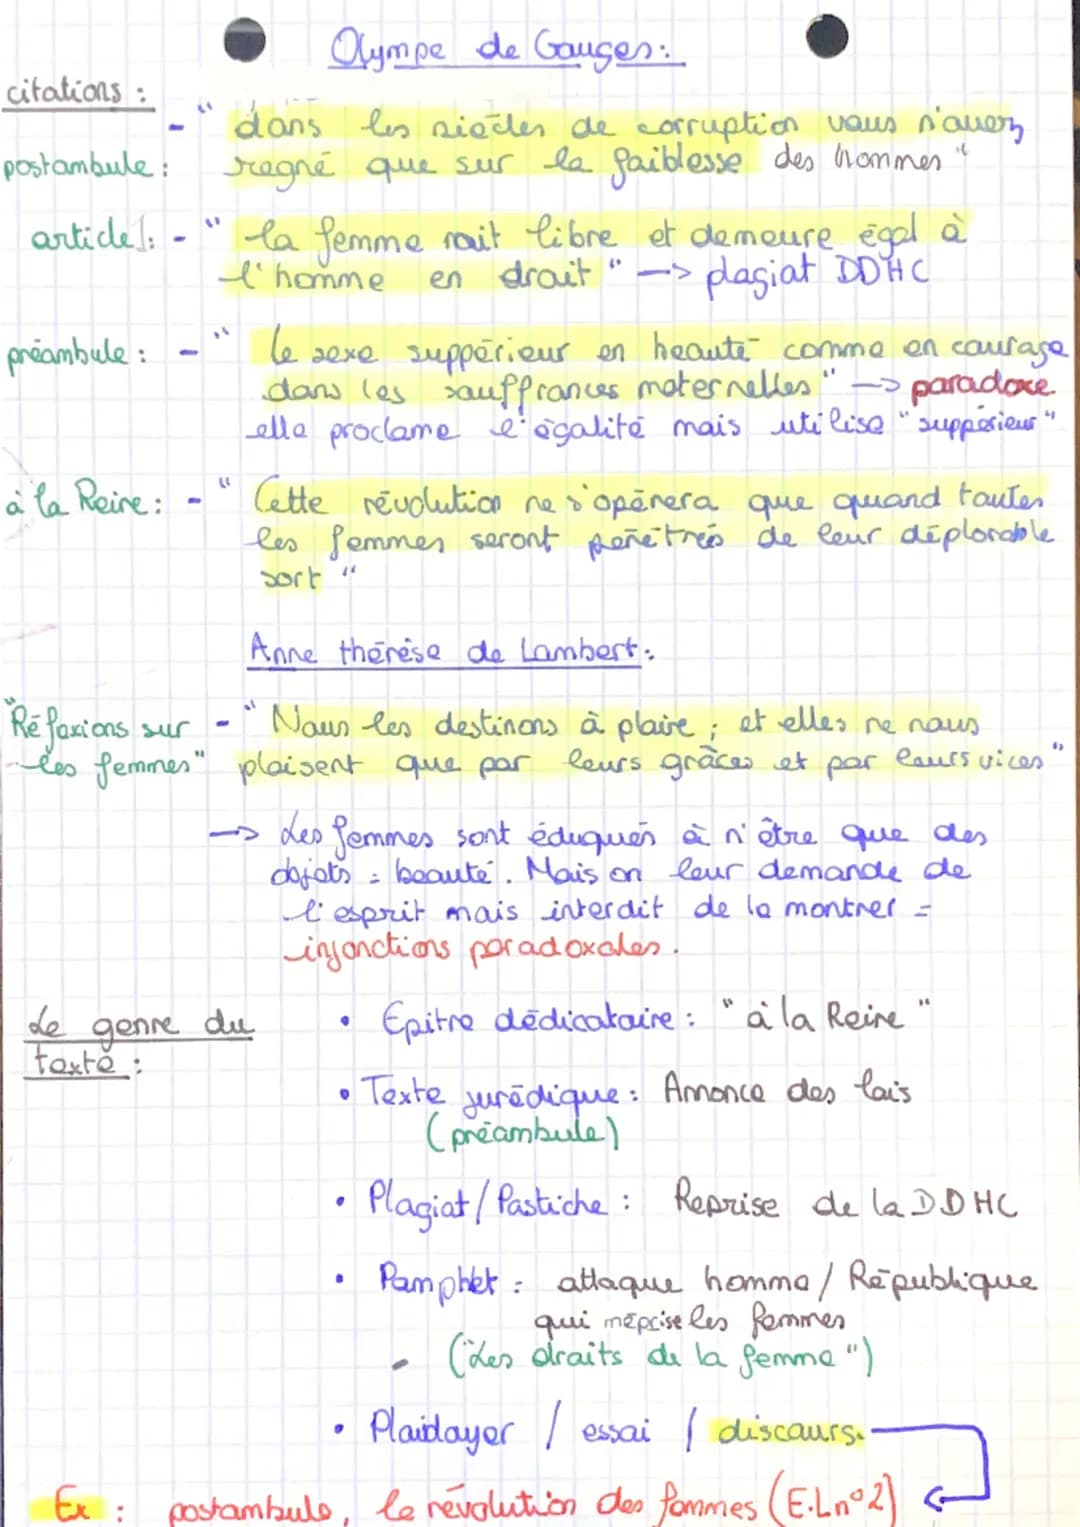 Olympe de Gouges :
citations :
- " dans les siècles de corruption vous n'avez
postambule : régné que sur la faiblesse des hommes "
article 1 : - " la femme nait libre et demeure égal à
l'homme en droit " -> plagiat DDHC
préambule : - " le sexe suppérieur en beauté comme en courage
dans les souffrances maternelles " -> paradoxe
elle proclame l'égalité mais utilise " suppérieur "
à la Reine : - " Cette révolution ne s'opérera que quand toutes
les femmes seront pénétrés de leur déplorable
sort "
Anne thérèse de Lambert :
"Réflexions sur - " Nous les destinons à plaire ; et elles ne nous
les femmes" plaisent que par leurs grâces et par leurs vices "
-> Les femmes sont éduqués à n'être que des
objets = beauté. Mais on leur demande de
l'esprit mais interdit de le montrer =
injonctions paradoxales.
Le genre du • Epitre dédicataire : " à la Reine "
texte :
• Texte juridique : Annonce des lois
(préambule)
• Plagiat / Pastiche : Reprise de la DDHC
• Pamphlet : attaque homme / République
qui méprise les femmes
- ("Les droits de la femme ")
• Plaidoyer / essai / discours.
Ex : postambule, la révolution des femmes (E.L n°2)